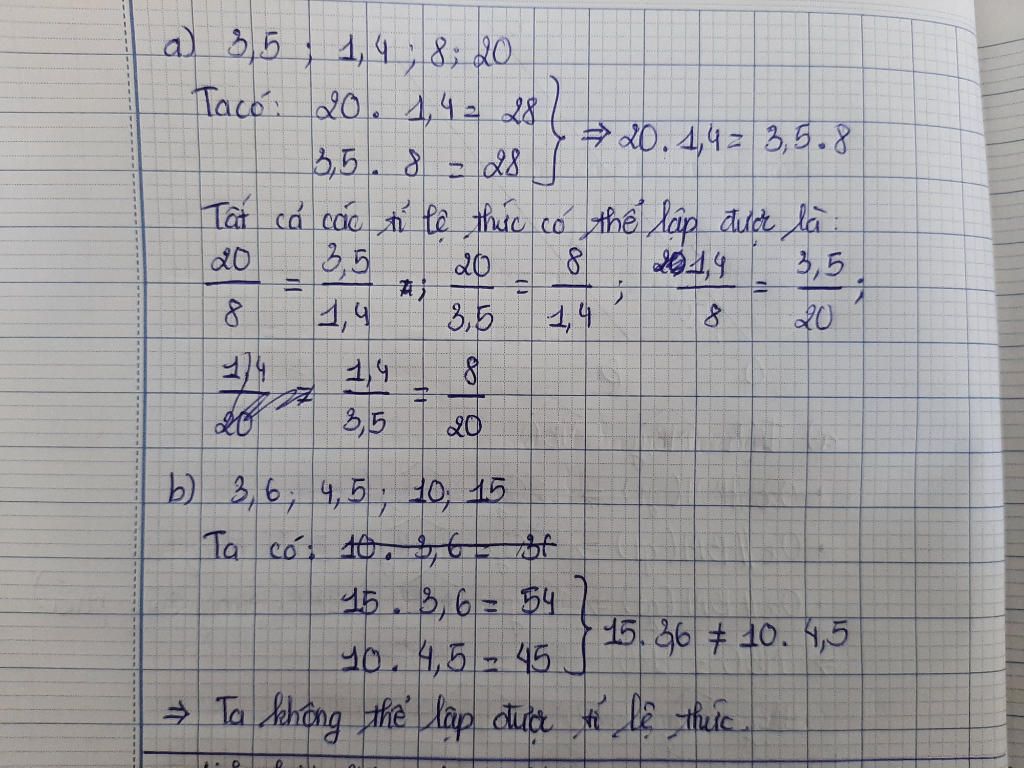 a) 3,5 ; 1,4 ; 8 ; 20
Ta có: 20 . 1,4 = 28
3,5 . 8 = 28
⇒ 20 . 1,4 = 3,5 . 8
Tất cả các tỉ lệ thức có thể lập được là:
20/8 = 3,5/1,4 ; 20/3,5 = 8/1,4 ; 1,4/8 = 3,5/20 ;
1,4/3,5 = 8/20
b) 3,6 ; 4,5 ; 10 ; 15
Ta có:
15 . 3,6 = 54
10 . 4,5 = 45
15 . 3,6 ≠ 10 . 4,5
⇒ Ta không thể lập được tỉ lệ thức.